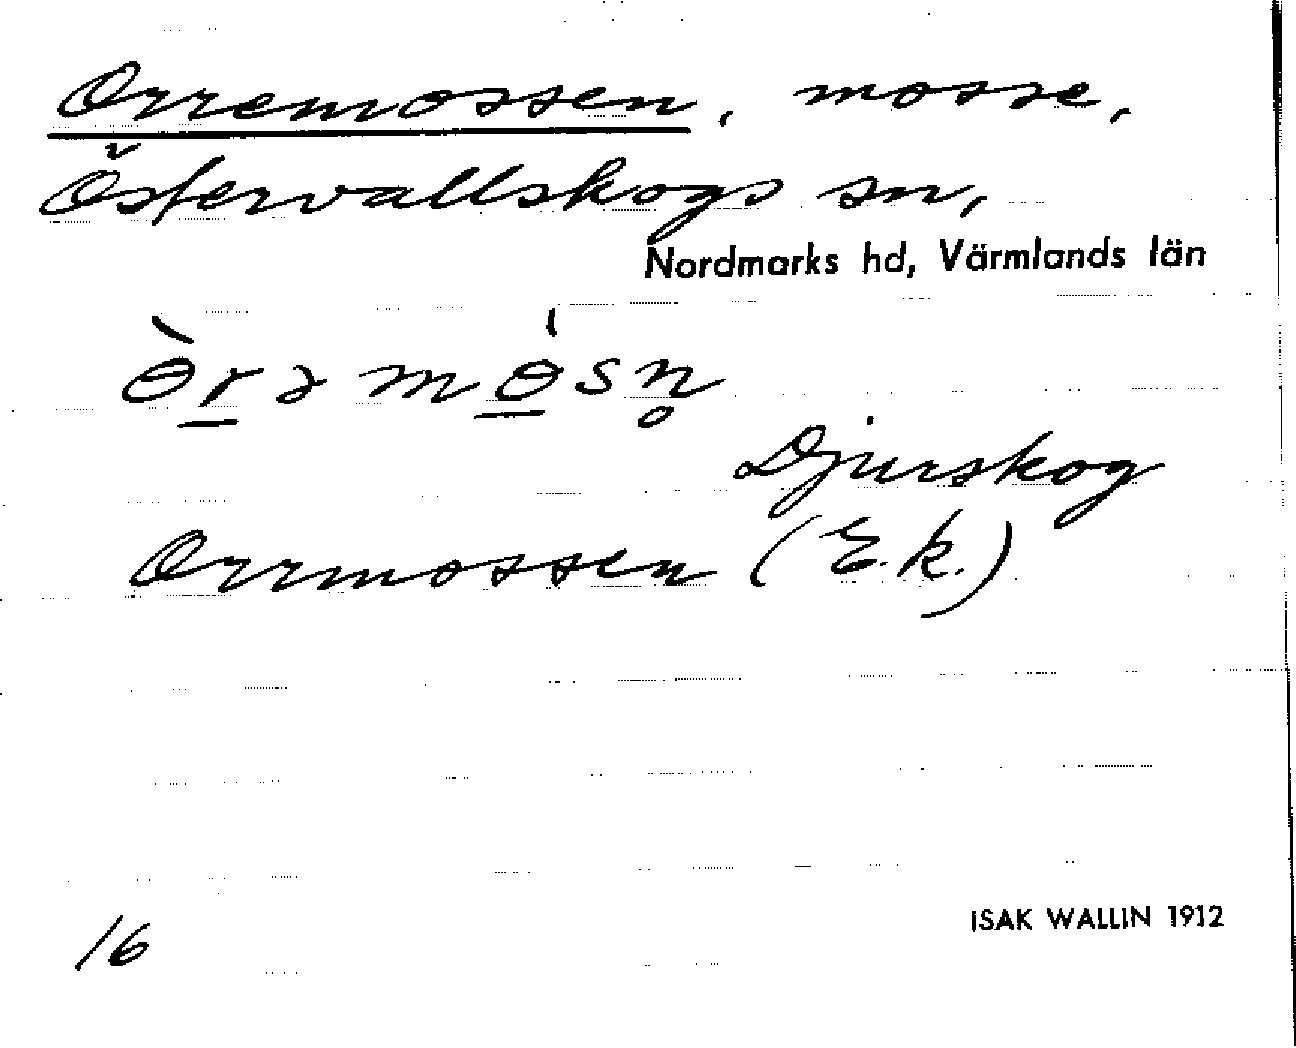 Orremossen, mosse,
Östervallskogs sn,
Nordmarks hd, Värmlands län
ɵ̀r̲ə mɵ̲́sn̥
Djurskog
Orrmossen (E.k.)
16
ISAK WALLIN 1912